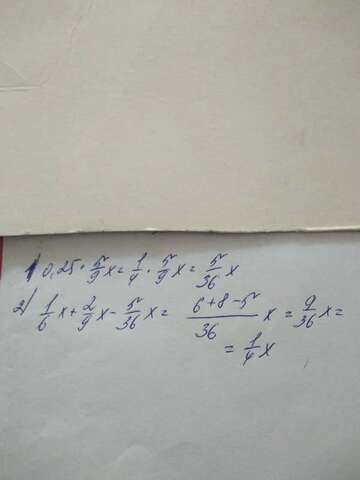 1) 0,25 · 5/9 x = 1/4 · 5/9 x = 5/36 x
2) 1/6 x + 2/9 x - 5/36 x = (6+8-5)/36 x = 9/36 x =
= 1/4 x